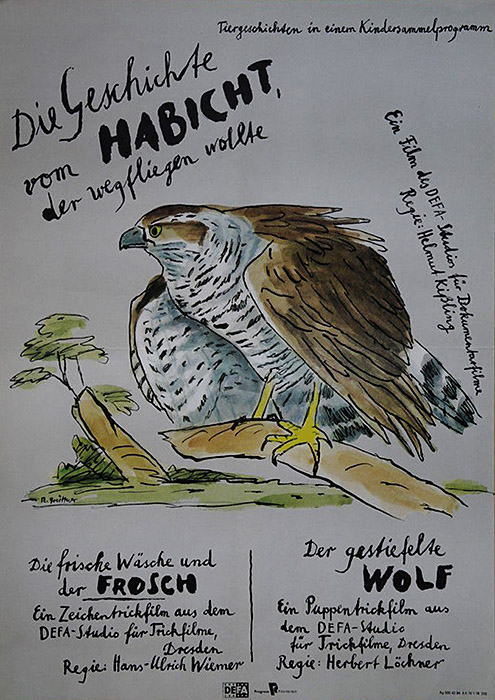 Tiergeschichten in einem Kindersammelprogramm
Die Geschichte
vom HABICHT,
der wegfliegen wollte
Ein Film des DEFA-Studio für Dokumentarfilme
Regie: Helmut Kißling
Die frische Wäsche und
der FROSCH
Ein Zeichentrickfilm aus dem
DEFA-Studio für Trickfilme,
Dresden
Regie: Hans-Ulrich Wiemer
Der gestiefelte
WOLF
Ein Puppentrickfilm aus
dem DEFA-Studio
für Trickfilme, Dresden
Regie: Herbert Löchner
DEFA
Progress